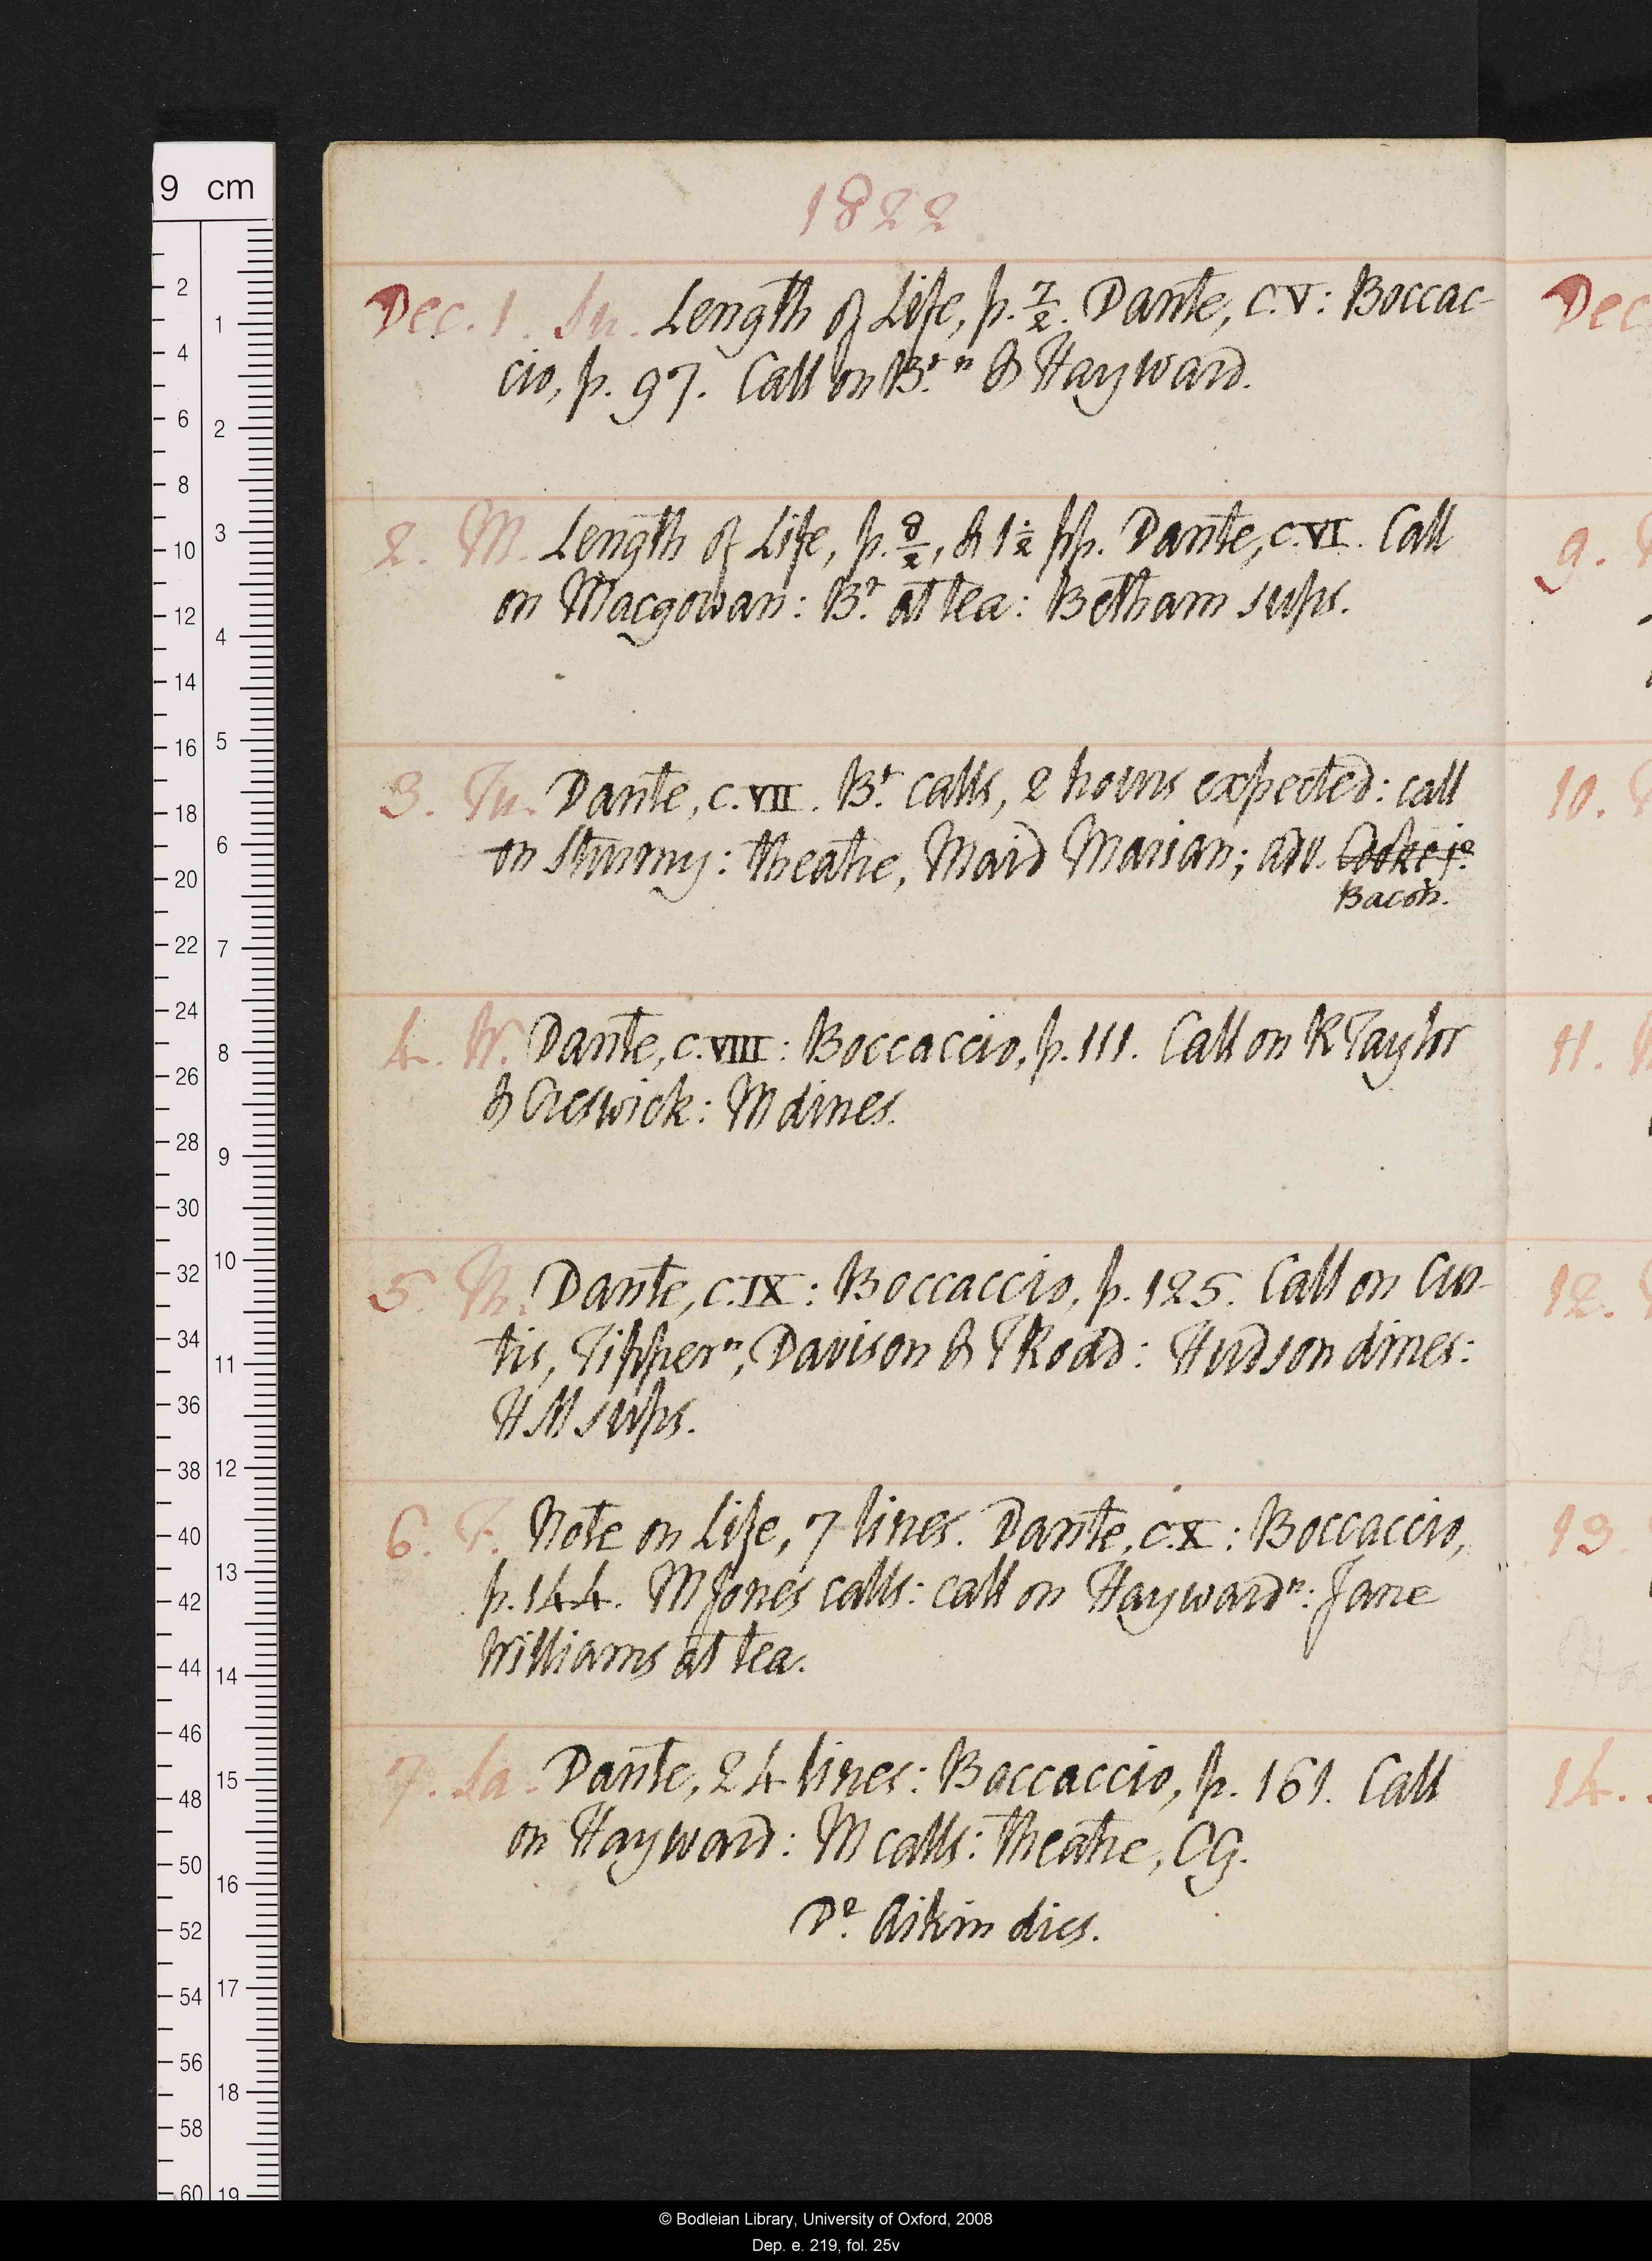 9 cm
1822
Dec. 1. Su. Length of Life, p. 7/2. Dante, c. V: Boccac-
cio, p. 97. Call on Bt. n & Hayward.
2. M. Length of Life, p. 8/2, & 1 1/2 pp. Dante, c. VI. Call
on Macgowan: Bt. at tea: Betham sups.
3. Tu. Dante, c. VII. Bt. calls, 2 hours expected: call
on Sturmy: theatre, Maid Marian; adv. Cooke jo.
Bacon.
4. W. Dante, c. VIII: Boccaccio, p. 111. Call on R Taylor
& Creswick: M dines.
5. Th. Dante, c. IX: Boccaccio, p. 125. Call on Cur-
tis, Tipper n, Davison & T Rodd: Hudson dines:
H M sups.
6. F. Note on Life, 7 lines. Dante, c. X: Boccaccio,
p. 144. M Jones calls: call on Hayward n: Jane
Williams at tea.
7. Sa. Dante, 24 lines: Boccaccio, p. 161. Call
on Hayward: M calls: theatre, CG.
Dr. Aikin dies.
Dec
9.
10.
11.
12.
13.
14.
© Bodleian Library, University of Oxford, 2008
Dep. e. 219, fol. 25v